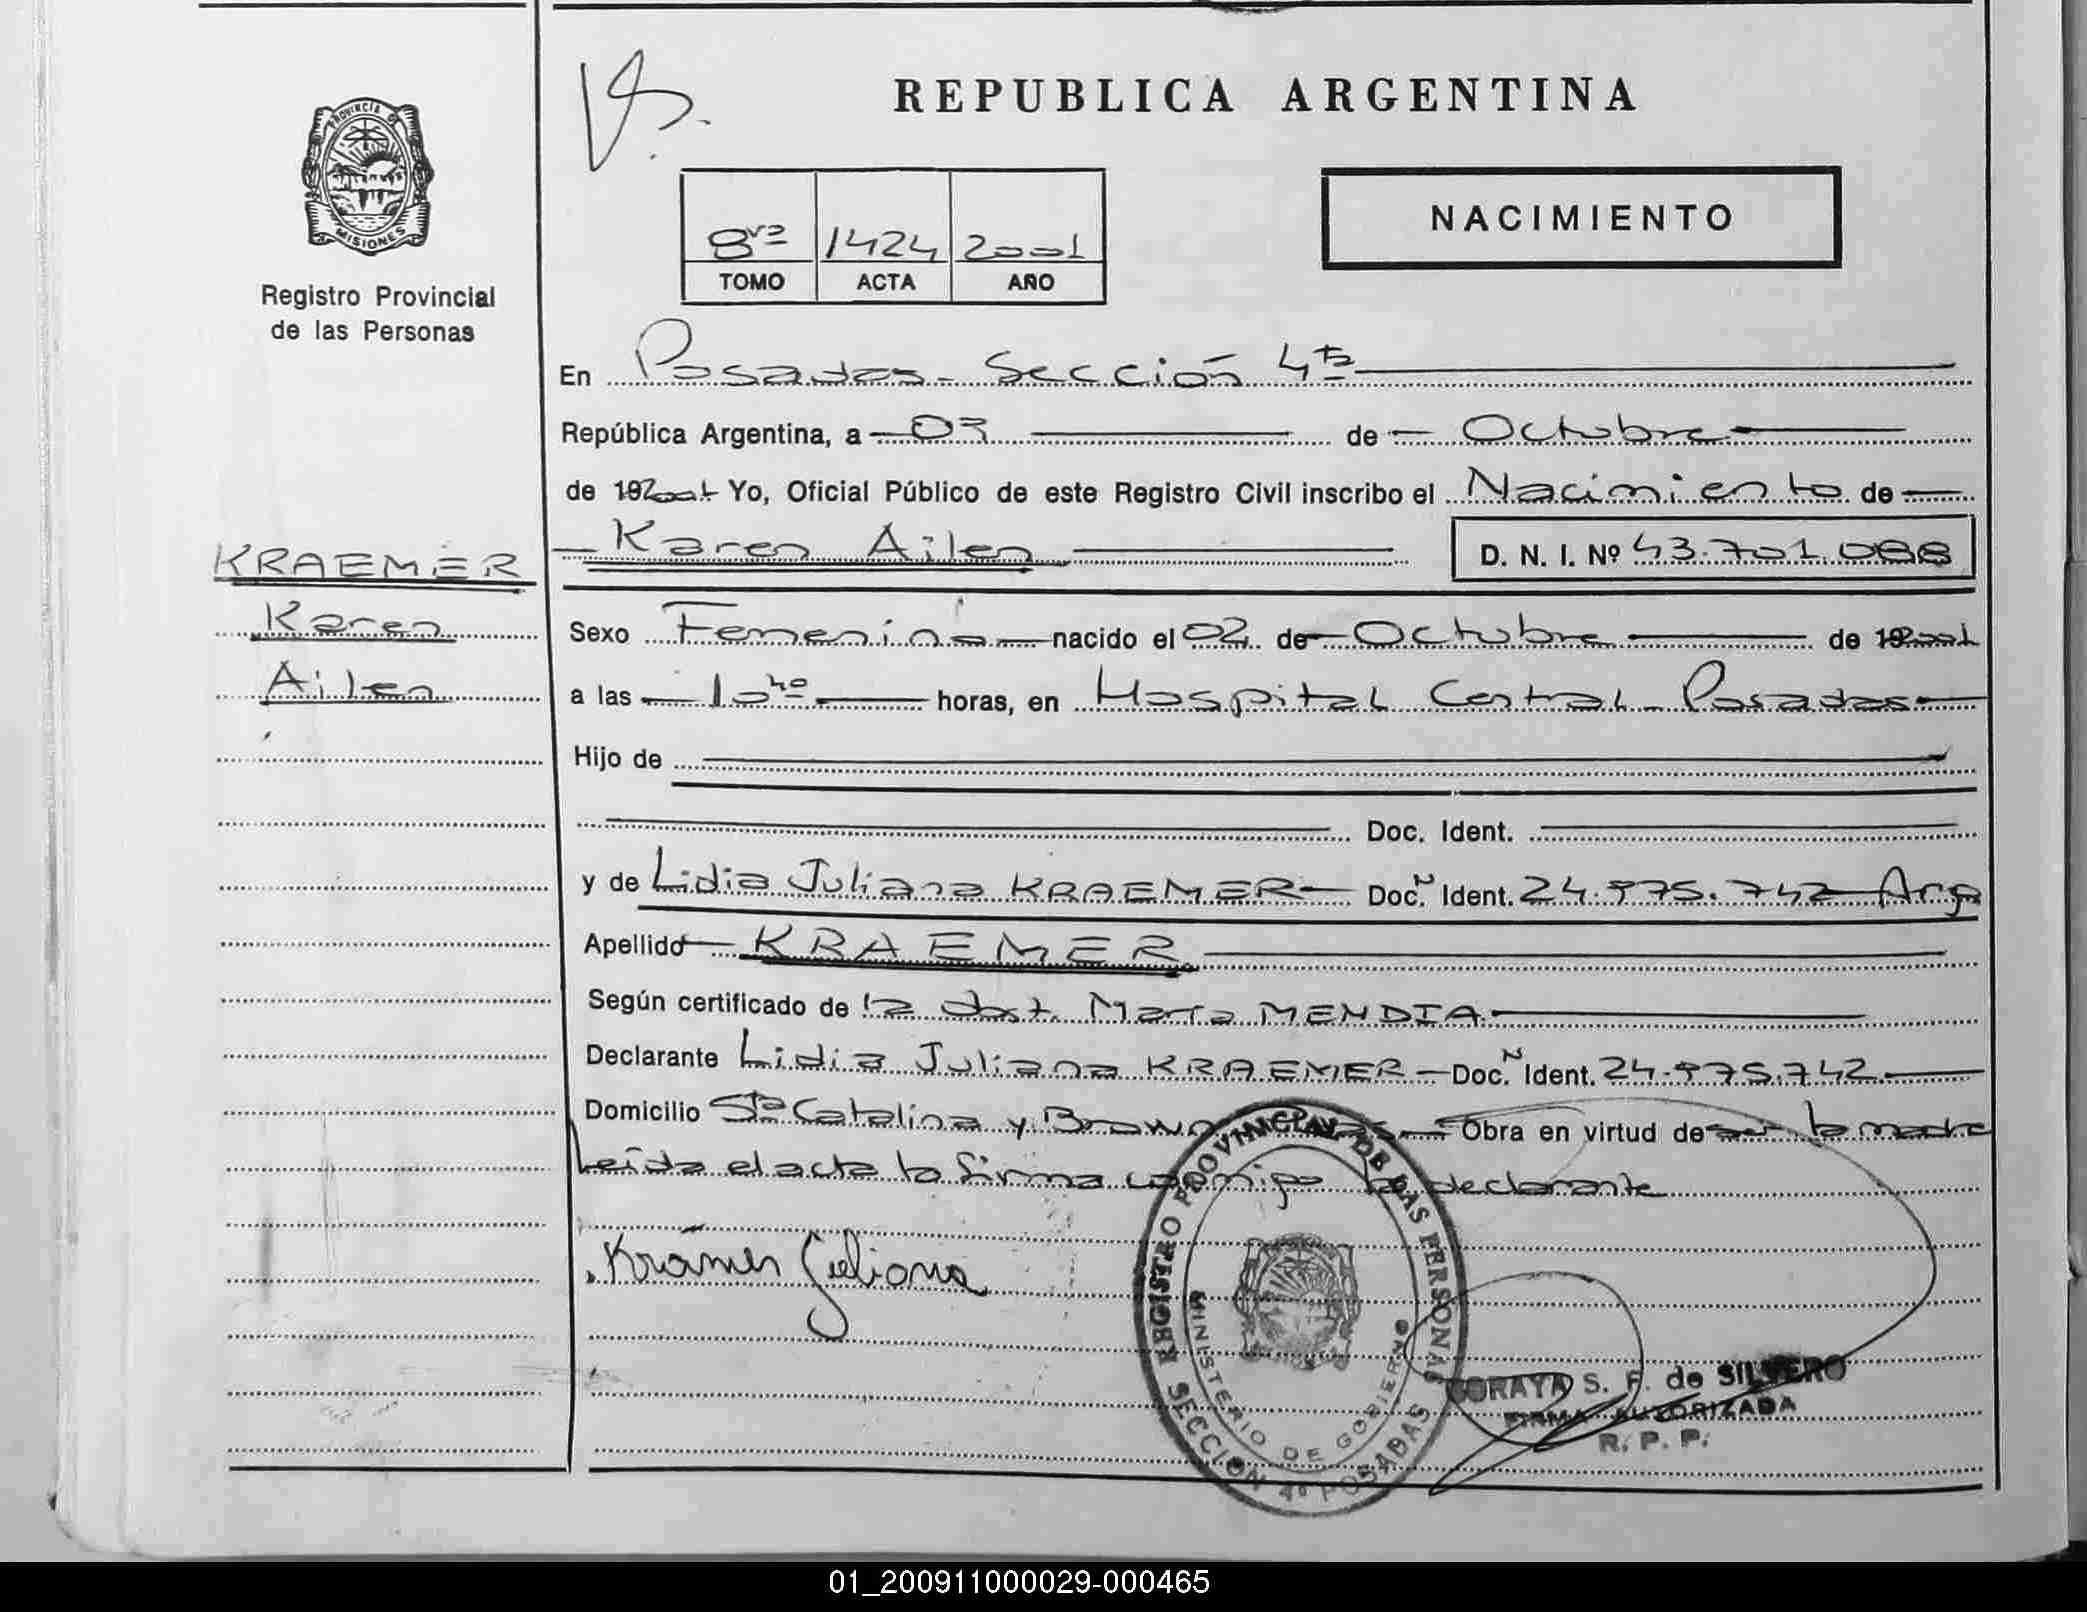 REPUBLICA ARGENTINA
PROVINCIA DE
MISIONES
Registro Provincial
de las Personas
8vo 1424 2001
TOMO ACTA AÑO
NACIMIENTO
En Posadas - Sección 4ta
República Argentina, a 03 de Octubre
de 192001 Yo, Oficial Público de este Registro Civil inscribo el Nacimiento de
KRAEMER
Karen Ailen
Karen Ailen D. N. I. Nº 43.701.088
Sexo Femenino nacido el 02 de Octubre de 192001
a las 10 40 horas, en Hospital Central - Posadas
Hijo de
Doc. Ident.
y de Lidia Juliana KRAEMER Doc. N Ident. 24.975.742 Arg
Apellido KRAEMER
Según certificado de la obst. Marta MENDIA
Declarante Lidia Juliana KRAEMER Doc. N Ident. 24.975.742
Domicilio Sta Catalina y Brown Obra en virtud de ser la madre
Leída el acta la firma conmigo la declarante
Krämer Juliana
REGISTRO PROVINCIAL DE LAS PERSONAS
MINISTERIO DE GOBIERNO
SECCION 4º POSADAS
SORAYA S. F. de SILVERO
FIRMA AUTORIZADA
R. P. P.
01_200911000029-000465